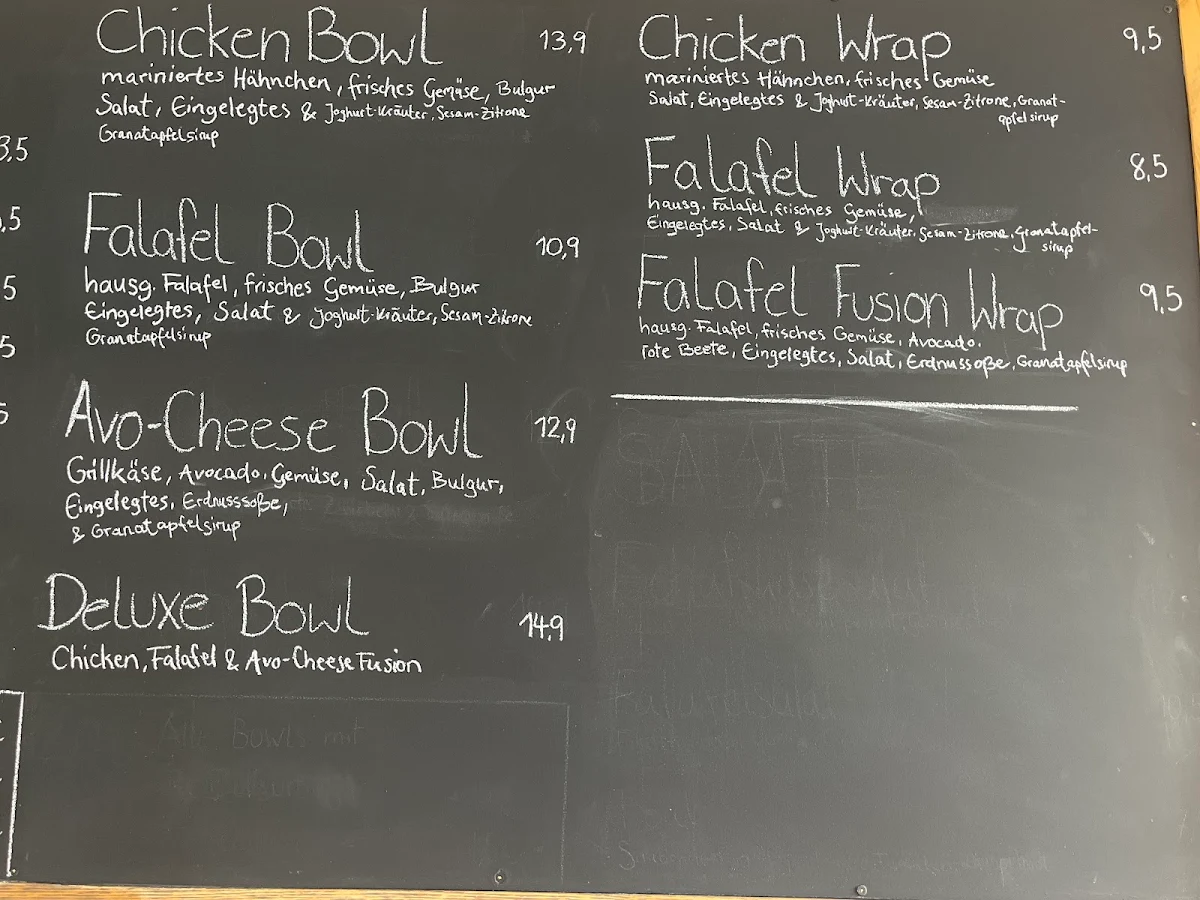 3,5
,5
5
5
5
Chicken Bowl 13,9
mariniertes Hähnchen, frisches Gemüse, Bulgur
Salat, Eingelegtes & Joghurt-Kräuter, Sesam-Zitrone
Granatapfelsirup
Falafel Bowl 10,9
hausg. Falafel, frisches Gemüse, Bulgur
Eingelegtes, Salat & Joghurt-Kräuter, Sesam-Zitrone
Granatapfelsirup
Avo-Cheese Bowl 12,9
Grillkäse, Avocado, Gemüse, Salat, Bulgur,
Eingelegtes, Erdnusssoße,
& Granatapfelsirup
Deluxe Bowl 14,9
Chicken, Falafel & Avo-Cheese Fusion
Alle Bowls mit
Chicken Wrap 9,5
mariniertes Hähnchen, frisches Gemüse
Salat, Eingelegtes & Joghurt-Kräuter, Sesam-Zitrone, Granat-
apfelsirup
Falafel Wrap 8,5
hausg. Falafel, frisches Gemüse,
Eingelegtes, Salat & Joghurt-Kräuter, Sesam-Zitrone, Granatapfel-
sirup
Falafel Fusion Wrap 9,5
hausg. Falafel, frisches Gemüse, Avocado,
rote Beete, Eingelegtes, Salat, Erdnusssoße, Granatapfelsirup
SALATE